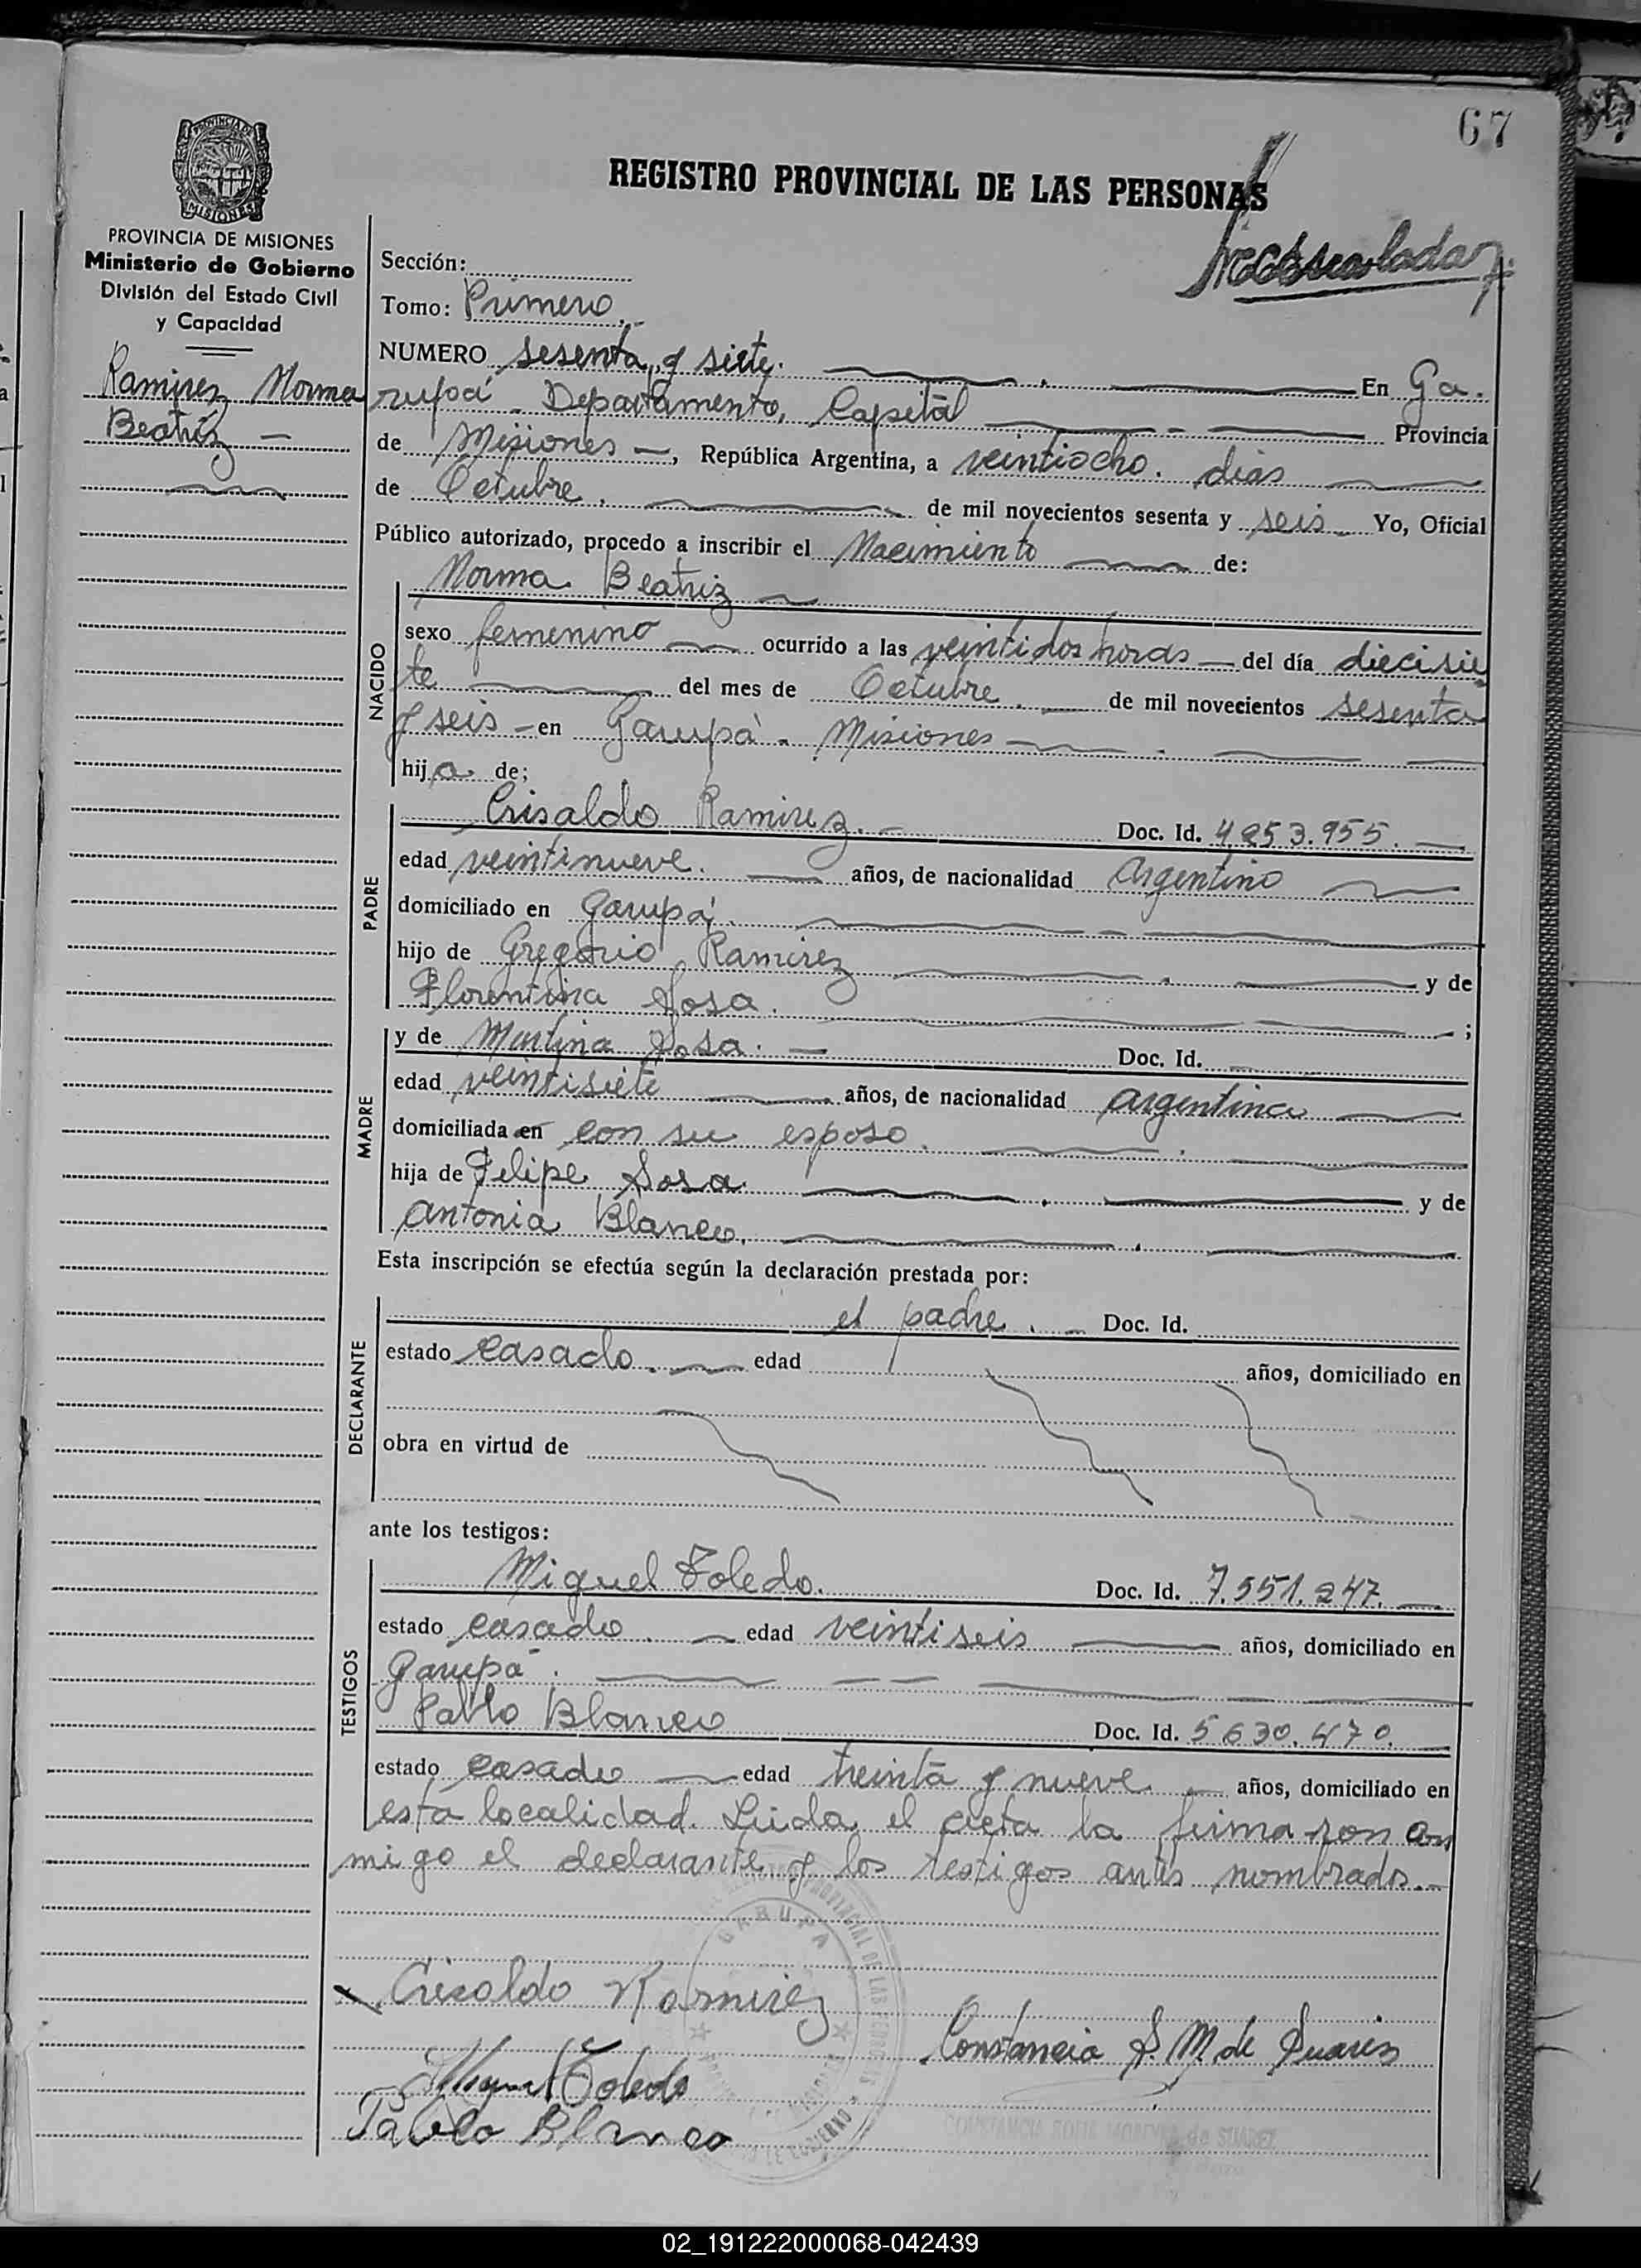 67
PROVINCIA DE
MISIONES
REGISTRO PROVINCIAL DE LAS PERSONAS
PROVINCIA DE MISIONES
Ministerio de Gobierno
División del Estado Civil
y Capacidad
Ramirez Norma
Beatriz —
Sección:
Tomo: Primero.
NUMERO sesenta y siete. En Ga.
rupá - Departamento, Capital — Provincia
de Misiones —, República Argentina, a veintiocho. dias
de Octubre. de mil novecientos sesenta y seis Yo, Oficial
Público autorizado, procedo a inscribir el Nacimiento de:
NACIDO
Norma Beatriz
sexo femenino ocurrido a las veintidos horas — del día diecisie
te del mes de Octubre. de mil novecientos sesenta
y seis - en Garupá - Misiones
hija de;
PADRE
Crisaldo Ramirez. - Doc. Id. 4253.955.
edad veintinueve. años, de nacionalidad Argentino
domiciliado en Garupá.
hijo de Gregorio Ramirez y de
Florentina Sosa. ;
MADRE
y de Martina Sosa. — Doc. Id. —
edad veintisiete años, de nacionalidad argentina
domiciliada en con su esposo.
hija de Felipe Sosa y de
Antonia Blanco.
Esta inscripción se efectúa según la declaración prestada por:
DECLARANTE
el padre. - Doc. Id.
estado casado. edad años, domiciliado en
obra en virtud de
ante los testigos:
TESTIGOS
Miguel Toledo. Doc. Id. 7.551.247.
estado casado. edad veintiseis años, domiciliado en
Garupá.
Pablo Blanco Doc. Id. 5630.470.
estado casado edad treinta y nueve. años, domiciliado en
esta localidad. Leida el acta la firma ron con
migo el declarante y los testigos antes nombrados.-
GARUPA
Crisaldo Ramirez
Constancia S. M de Suarez
Miguel Toledo
Pablo Blanco
CONSTANCIA de SUAREZ
02_191222000068-042439